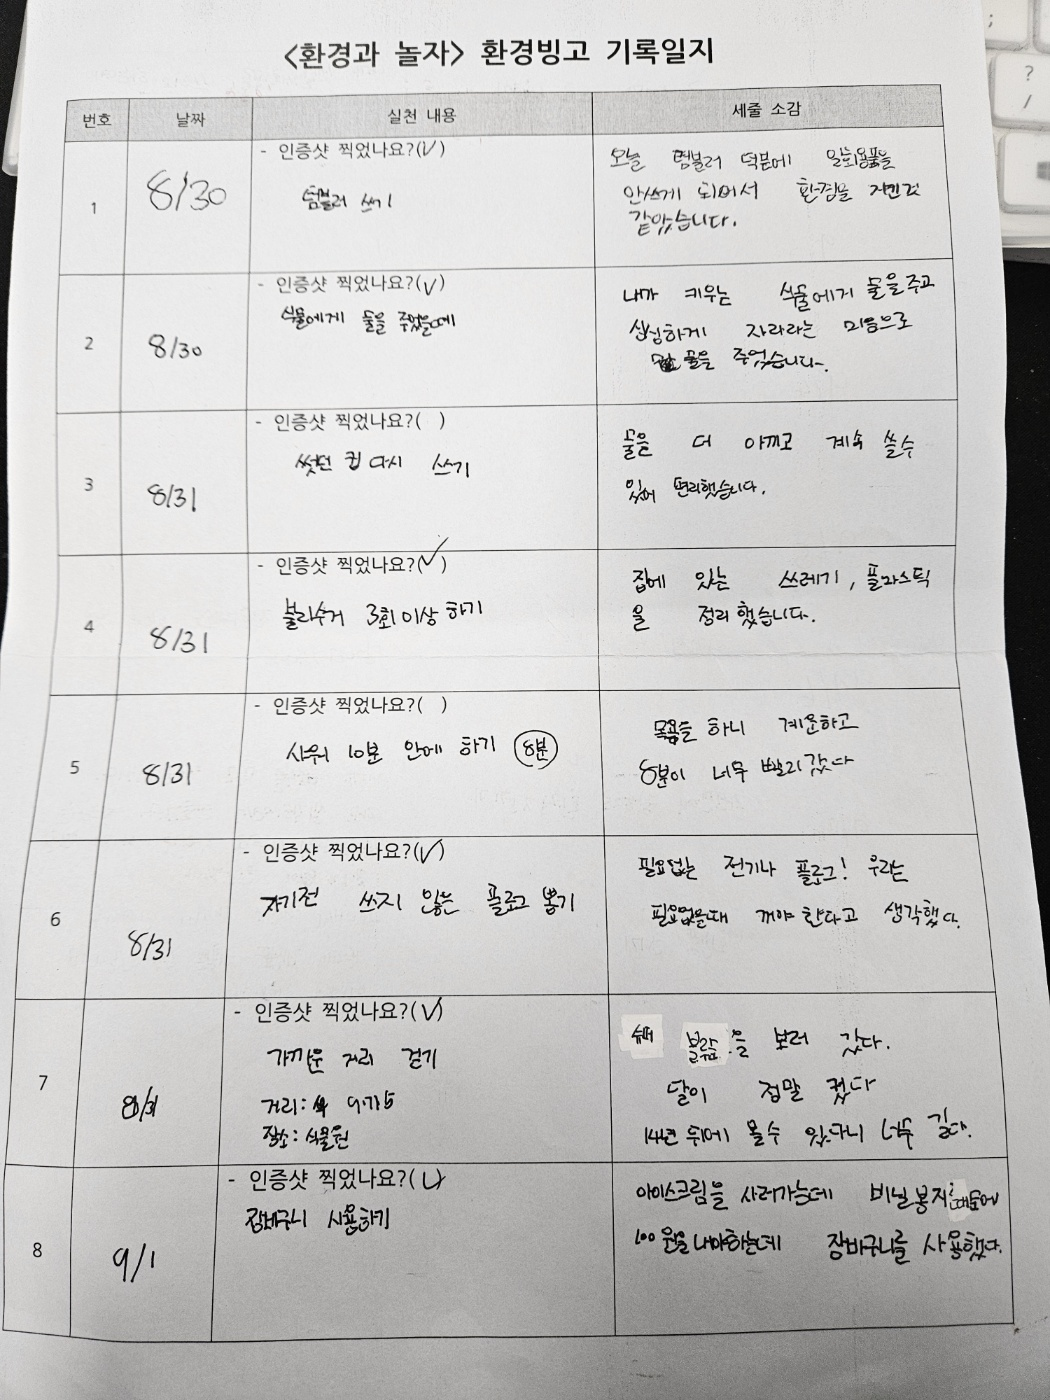 <환경과 놀자> 환경빙고 기록일지
번호 날짜 실천 내용 세줄 소감
1 8/30
- 인증샷 찍었나요?(✓)
텀블러 쓰기
오늘 텀블러 덕분에 일회용품을
안쓰게 되어서 환경을 지킨것
같았습니다.
2 8/30
- 인증샷 찍었나요?(✓)
식물에게 물을 주었을때
내가 키우는 식물에게 물을주고
싱싱하게 자라라는 마음으로
물을 주었습니다.
3 8/31
- 인증샷 찍었나요?( )
썻던 컵 다시 쓰기
물을 더 아끼고 계속 쓸수
있어 편리했습니다.
4 8/31
- 인증샷 찍었나요?(✓)
분리수거 3회이상 하기
집에 있는 쓰레기, 플라스틱
을 정리했습니다.
5 8/31
- 인증샷 찍었나요?( )
샤워 10분 안에 하기 8분
목욕을 하니 개운하고
8분이 너무 빨리갔다
6 8/31
- 인증샷 찍었나요?(✓)
자기전 쓰지 않는 플로그 뽑기
필요없는 전기나 플로그! 우리는
필요없을때 꺼야 한다고 생각했다.
7 8/31
- 인증샷 찍었나요?(✓)
가까운 거리 걷기
거리:
장소: 식물원
슈퍼 블루문을 보러 갔다.
달이 정말 컸다
14년 뒤에 볼수 있다니 너무 길다.
8 9/1
- 인증샷 찍었나요?(✓)
장바구니 사용하기
아이스크림을 사러가는데 비닐봉지때문에
100원을 내야하는데 장바구니를 사용했다.